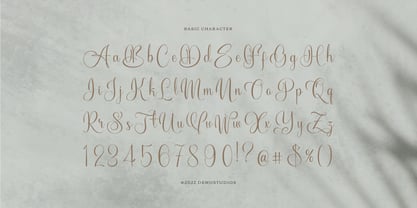 BASIC CHARACTER
Aa Bb Cc Dd Ee Ff Gg Hh
Ii Jj Kk Ll Mm Nn Oo Pp Qq
Rr Ss Tt Uu Vv Ww Xx Yy Zz
1234567890!?@#$%()
©2022 DEMOSTUDIOS